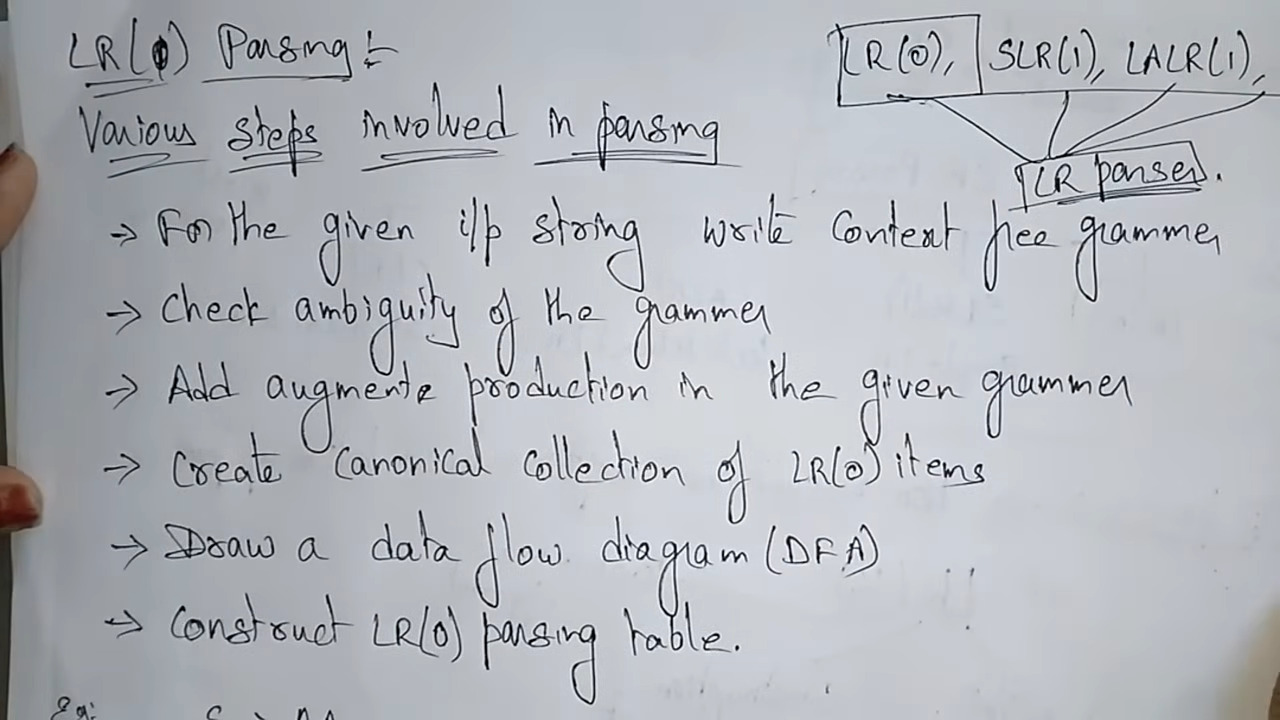 LR(0) Parsing:-
LR(0), SLR(1), LALR(1),
LR parser.
Various steps involved in parsing
→ For the given i/p string write Context free grammer
→ Check ambiguity of the grammer
→ Add augmente production in the given grammer
→ Create Canonical collection of LR(0) items
→ Draw a data flow diagram (DFA)
→ Construct LR(0) parsing table.
Ex: